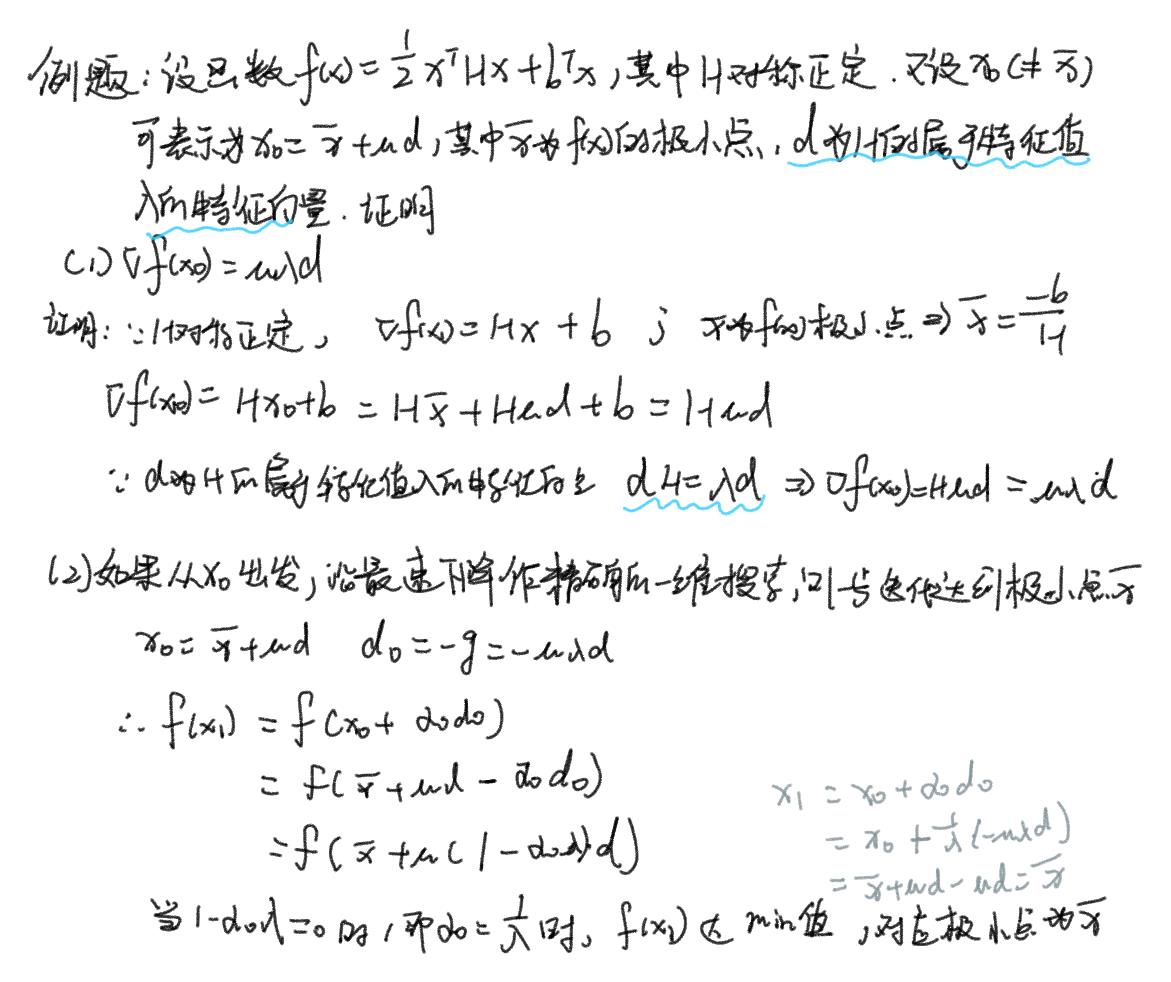 例题：设函数 f(x) = 1/2 xᵀHx + bᵀx，其中 H 对称正定．又设 x₀ (≠ x̄)
可表示为 x₀ = x̄ + μd，其中 x̄ 为 f(x) 的极小点，d 为 H 的属于特征值
λ的特征向量．证明
(1) ∇f(x₀) = μλd
证明：∵ H对称正定， ∇f(x) = Hx + b ； x̄为f(x)极小点 ⇒ x̄ = -b/H
∇f(x₀) = Hx₀+b = Hx̄ + Hμd + b = Hμd
∵ d为H的属于特征值λ的特征向量 dH = λd ⇒ ∇f(x₀) = Hμd = μλd
(2) 如果从x₀出发，沿最速下降作精确的一维搜索，则一步迭代达到极小点x̄
x₀ = x̄ + μd d₀ = -g = -μλd
∴ f(x₁) = f(x₀ + α₀d₀)
= f(x̄ + μd - α₀d₀)
= f(x̄ + μ(1-α₀λ)d)
x₁ = x₀ + α₀d₀
= x₀ + 1/λ(-μλd)
= x̄+μd-μd = x̄
当 1-α₀λ=0 时，即α₀ = 1/λ 时，f(x₁) 达 min值，对应极小点为x̄